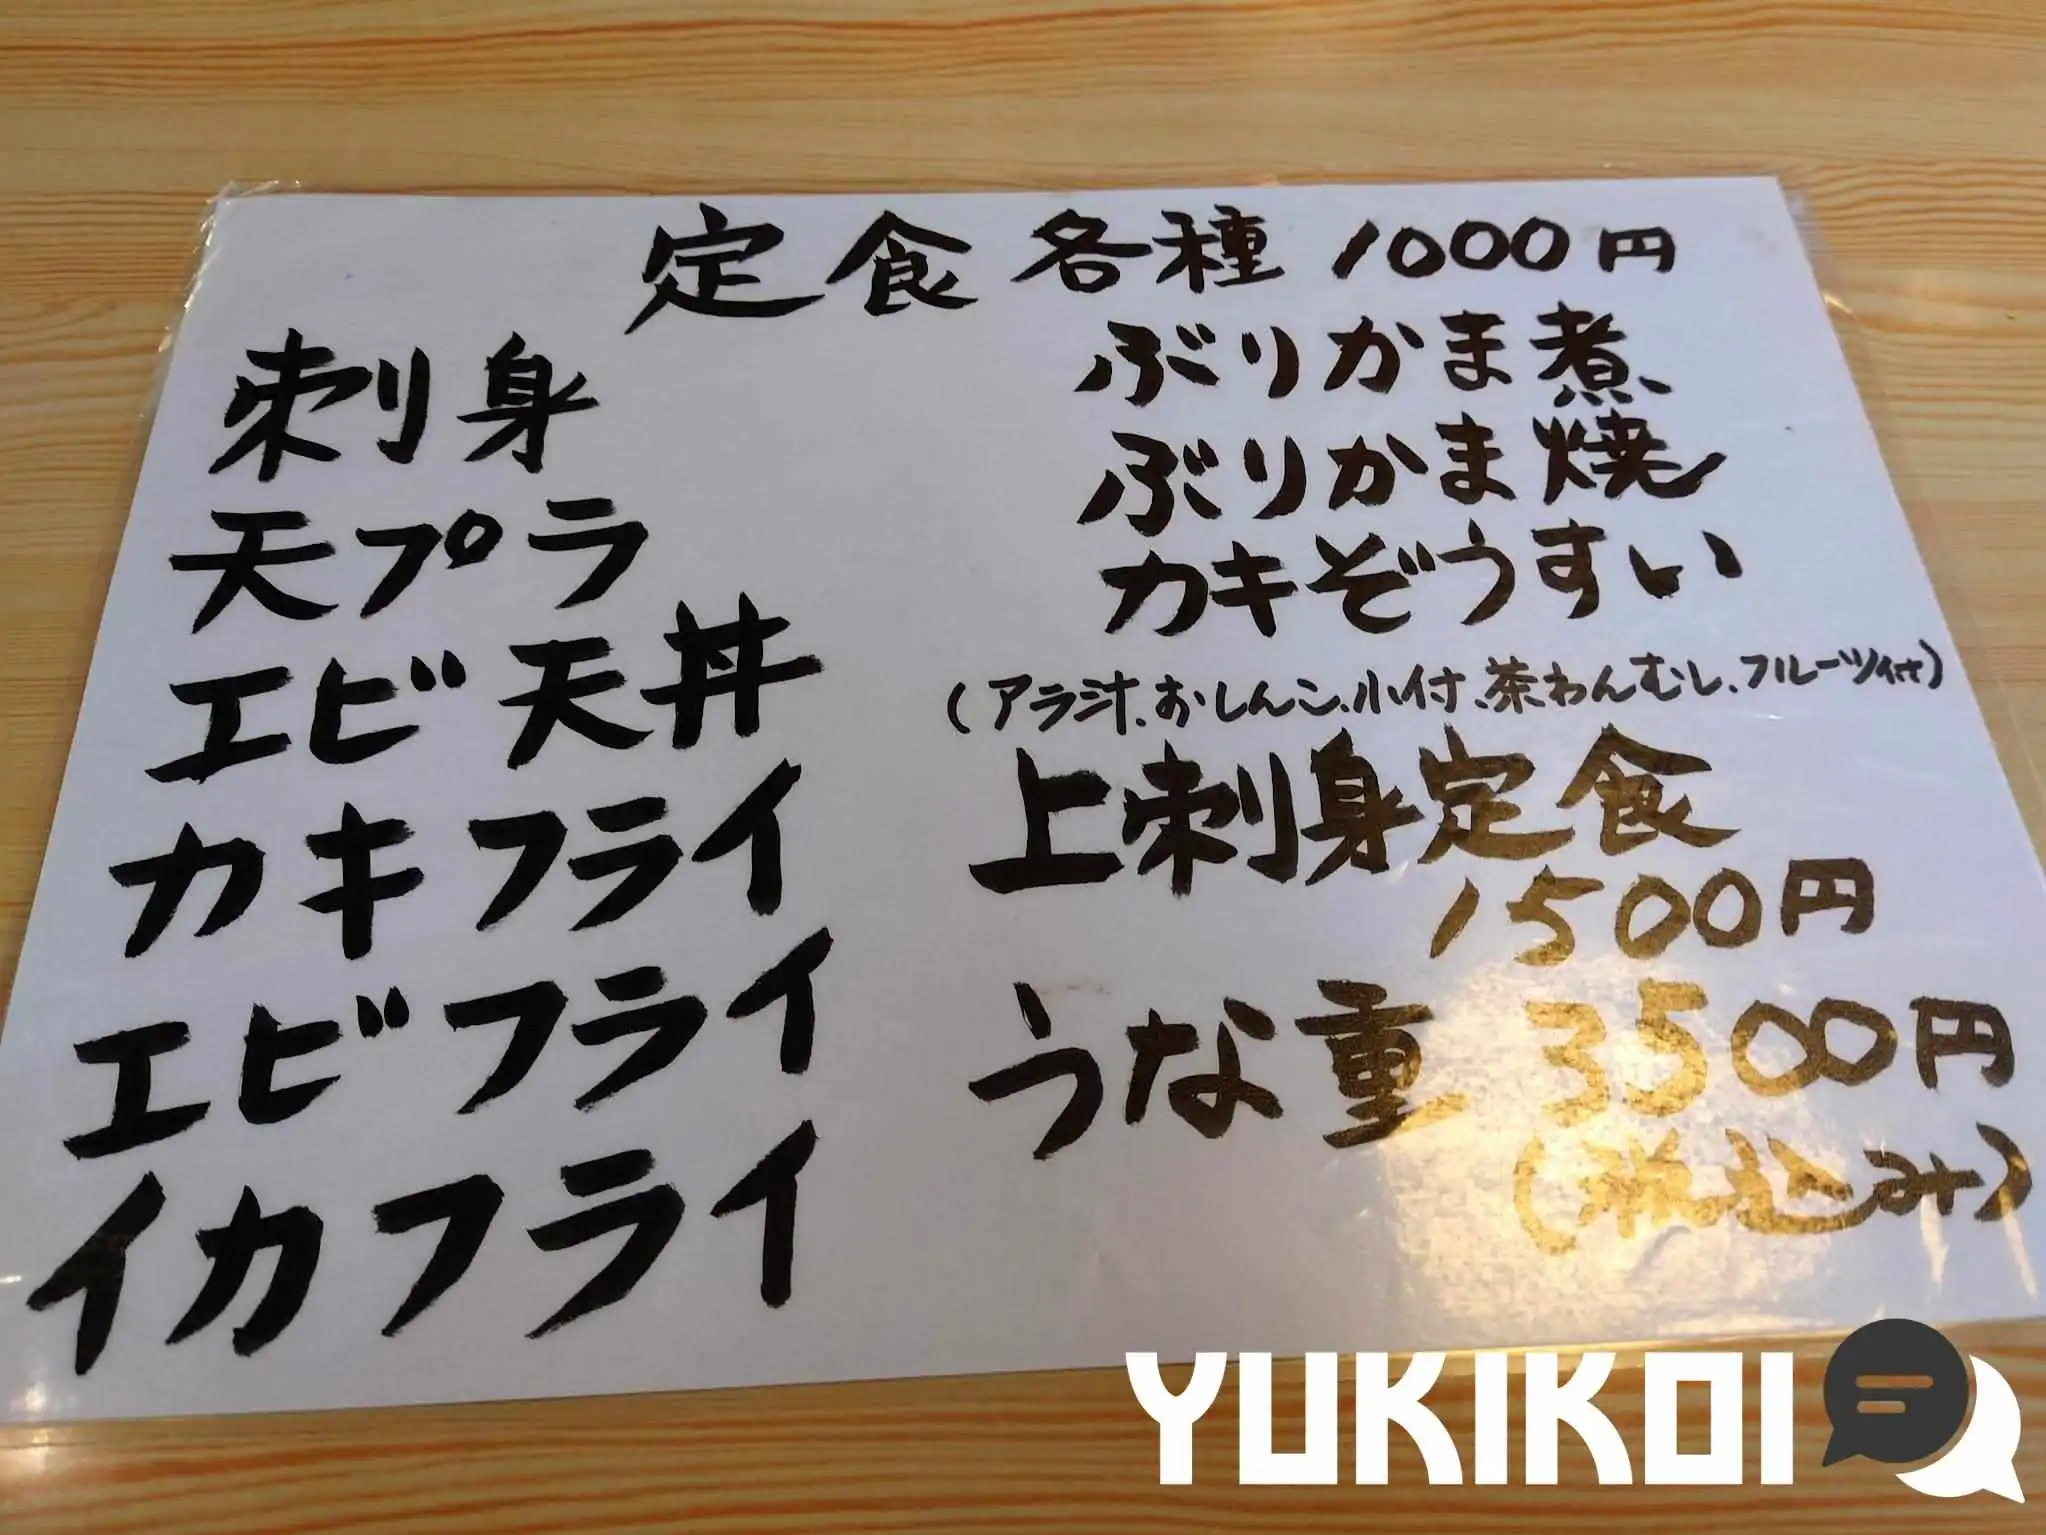 定食各種 1000円
刺身
天プラ
エビ天丼
カキフライ
エビフライ
イカフライ
ぶりかま煮
ぶりかま焼
カキぞうすい
(アラ汁、おしんこ、小付、茶わんむし、フルーツ付)
上刺身定食
1500円
うな重 3500円
(税込み)
YUKIKOI